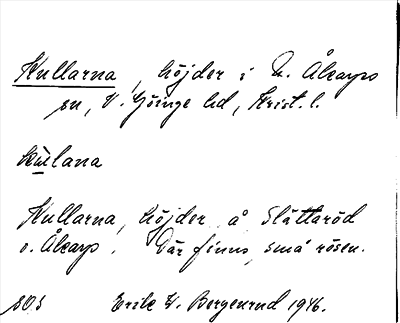 Kullarna, höjder i N. Åkarps
sn, V. Göinge hd, Krist. l.
kulana
Kullarna, höjder å Slättaröd
o. Åkarp. Där finns små rösen.
Erik V. Bergenrud 1946.